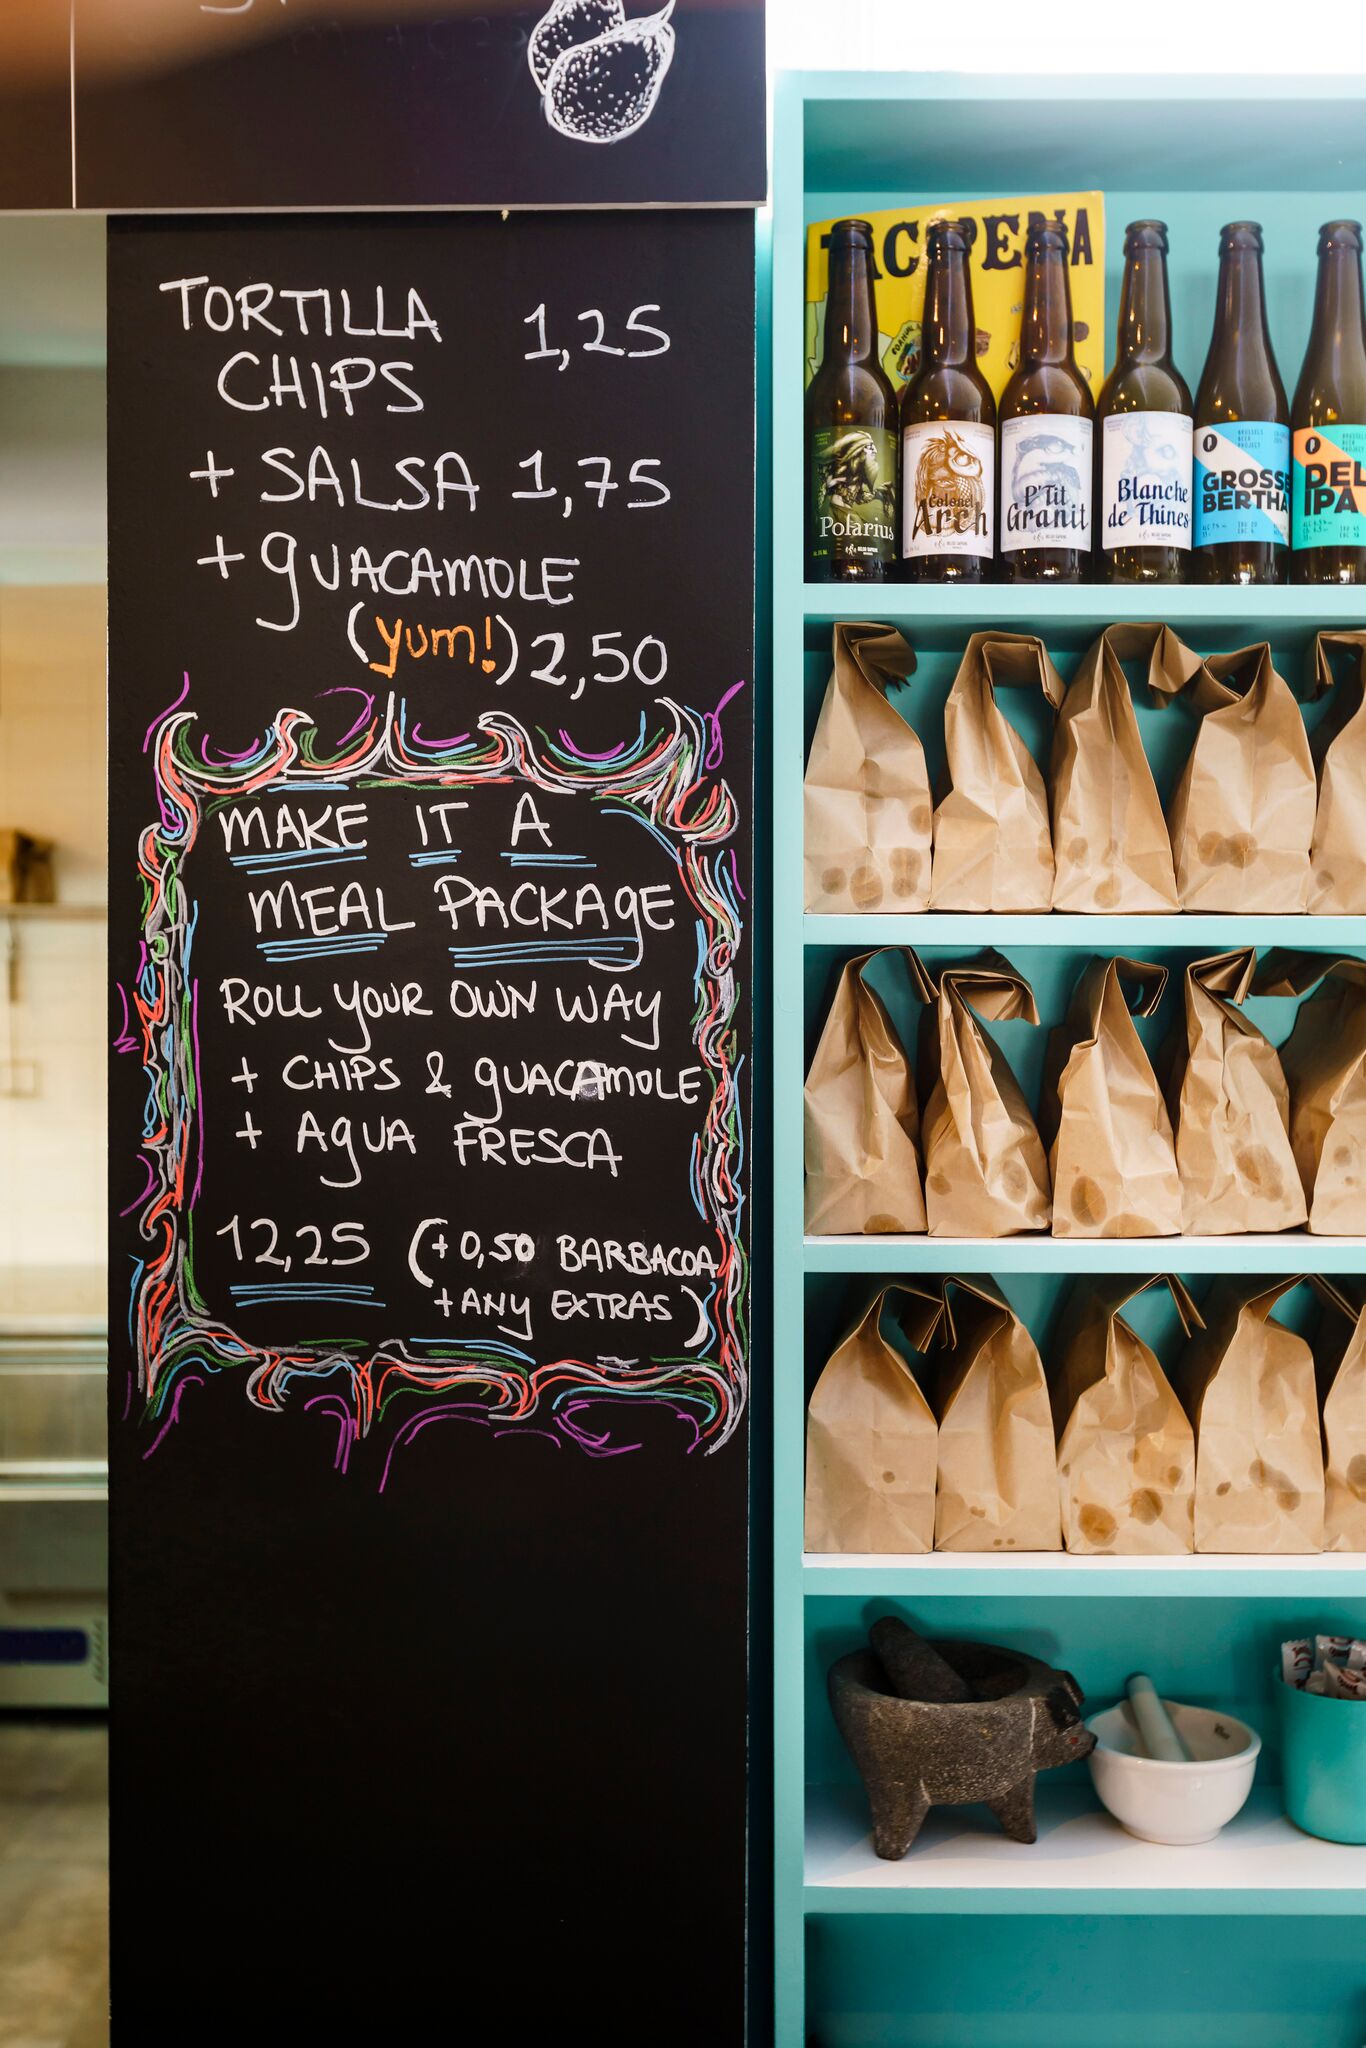 TORTILLA 1,25
CHIPS
+ SALSA 1,75
+ gUACAMOLE
(yum!) 2,50
MAKE IT A
MEAL PACKAgE
ROLL YOUR OWN WAY
+ CHIPS & gUACAMOLE
+ AgUA FRESCA
12,25 (+0,50 BARBACOA
+ANY EXTRAS)
Polarius
Colonel
Arch
P'Tit
Granit
Blanche
de Thines
BRUSSELS
BEER
PROJECT
GROSSE
BERTHA
BRUSSELS
BEER
PROJECT
DEL
IPA